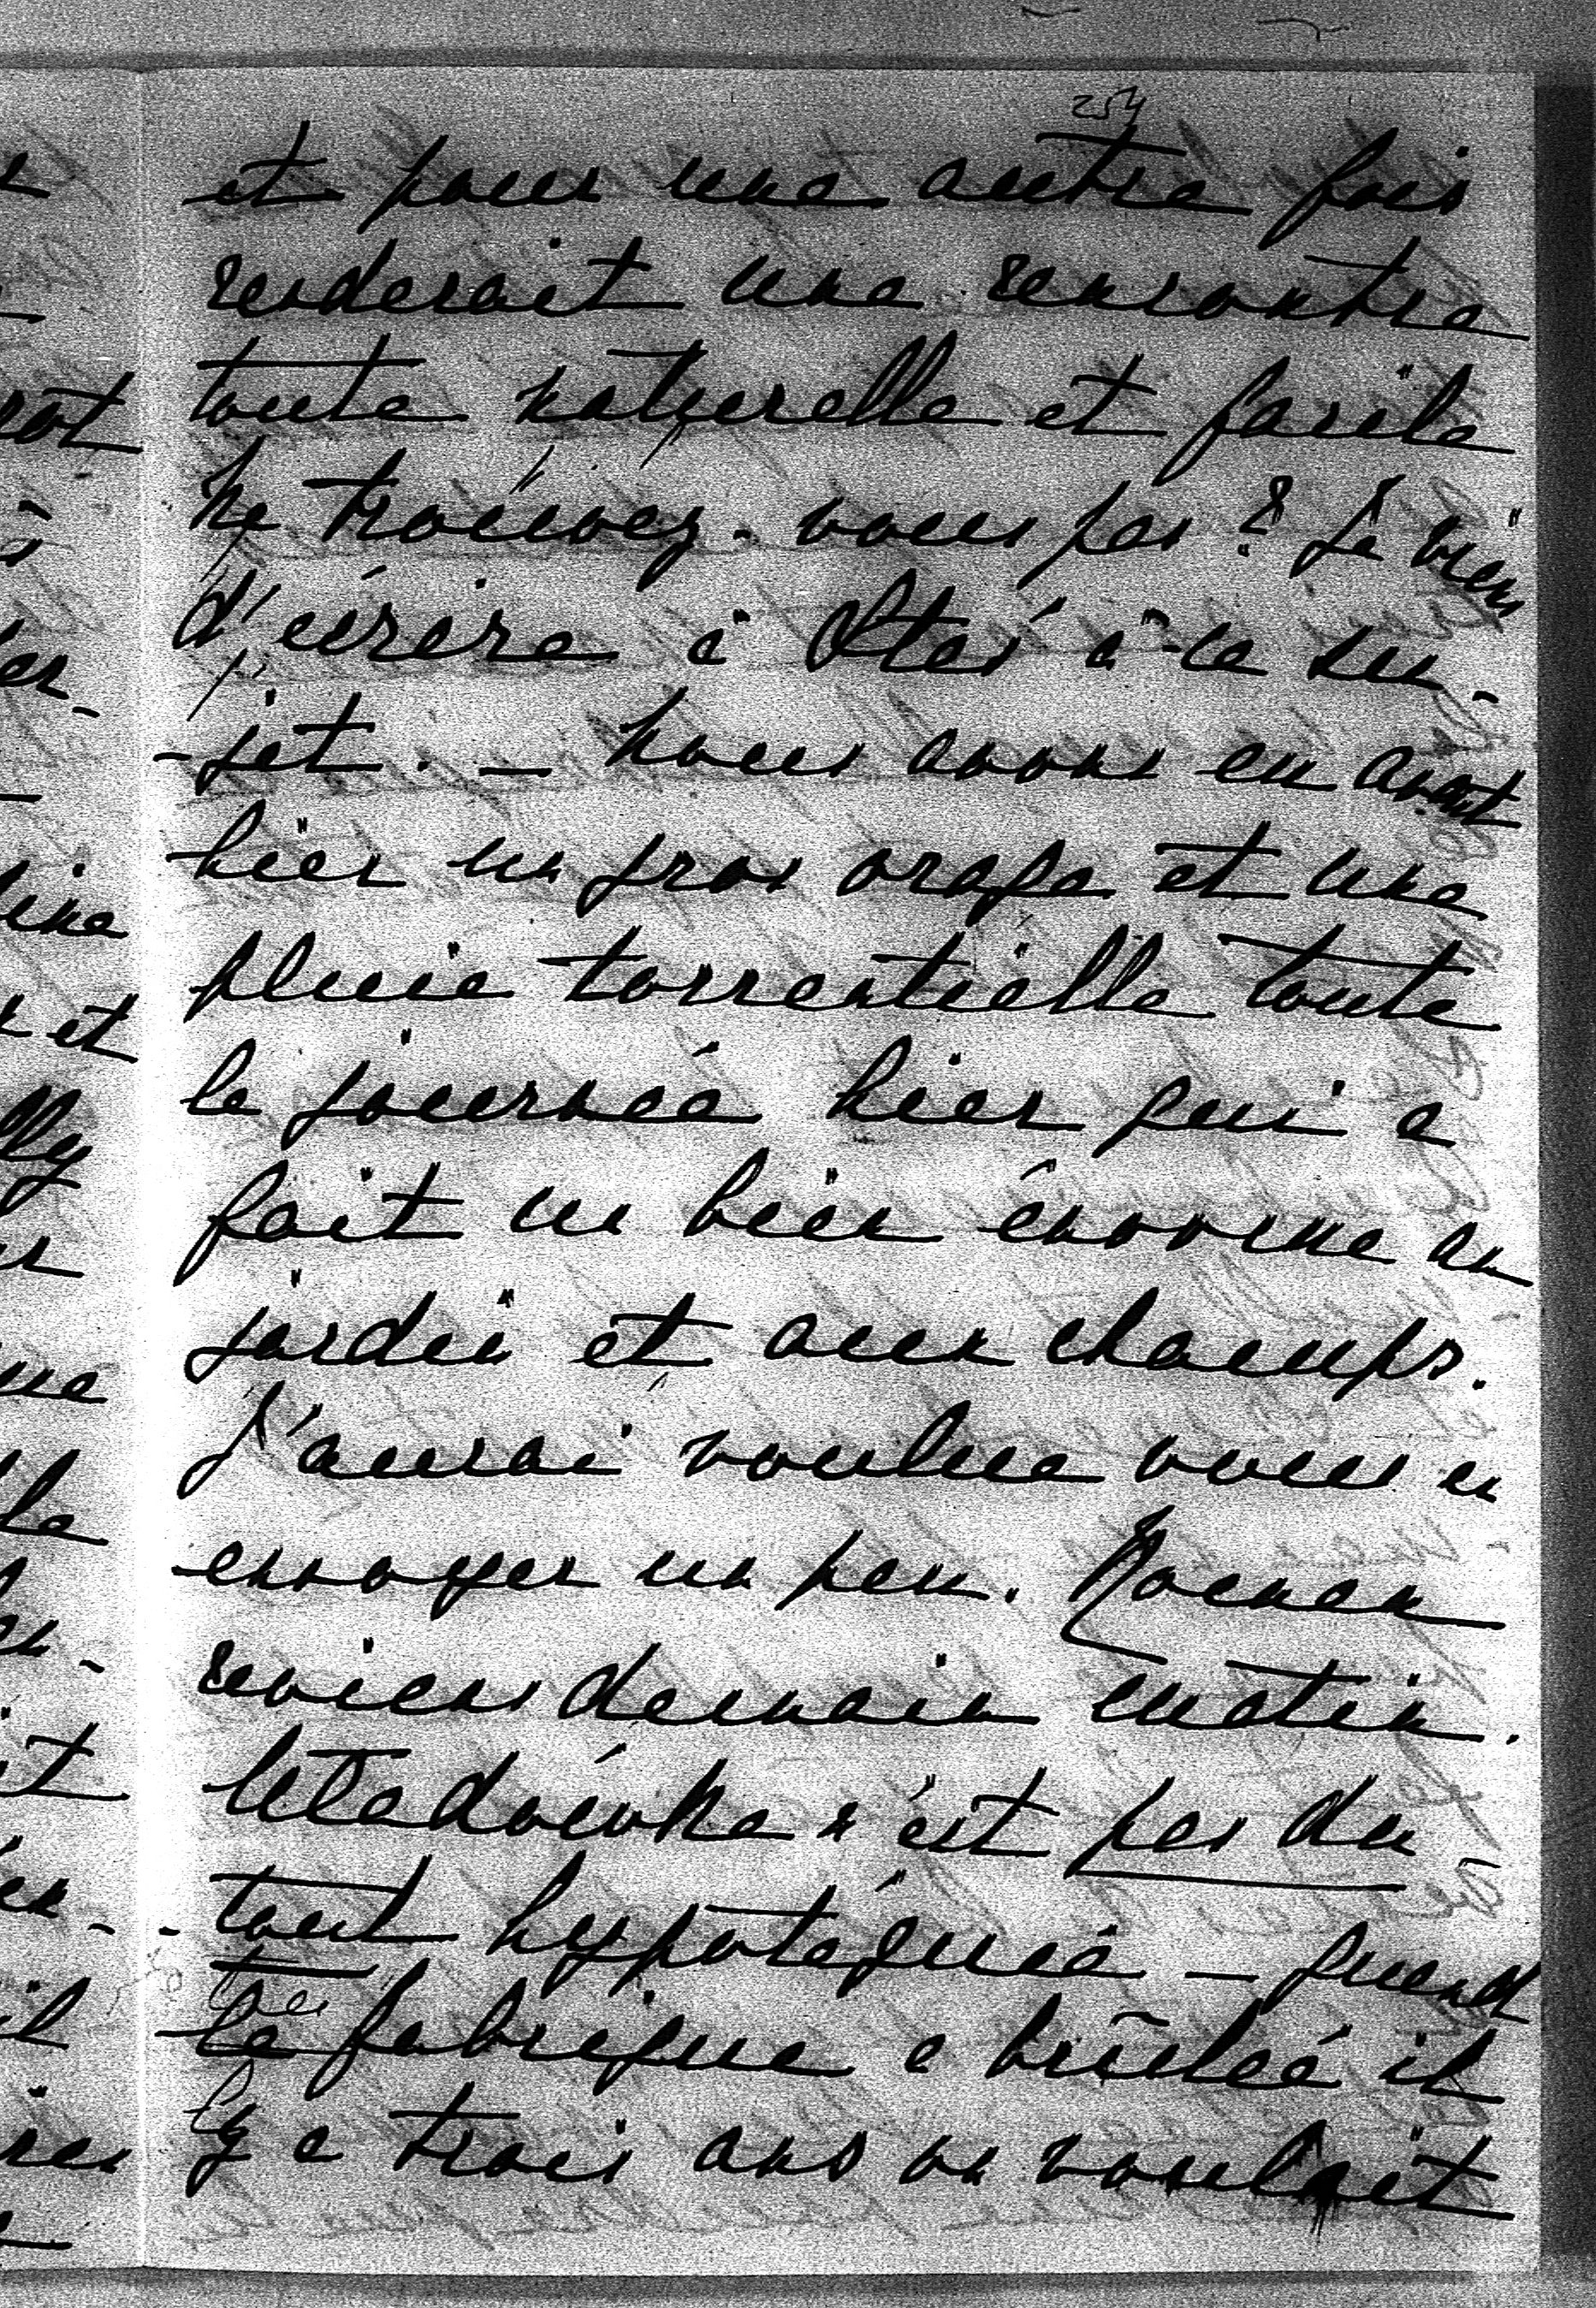 254
et pour une autre fois
renderait une rencontre
toute naturelle et facile
ne trouvez-vous pas? Je viens
d'écrire à Stas à ce su-
-jet. — Nous avons eu avant
hier un gros orage et une
pluie torrentielle toute
la journée hier qui a
fait un bien énorme au
jardin et aux champs.
J'aurai voulue vous en
envoyer un peu. Roman
reviens demain matin.
n'est pas du-
-tout hypotéquée — quand
la fabrique a brûlée il
y a trois ans on voulait